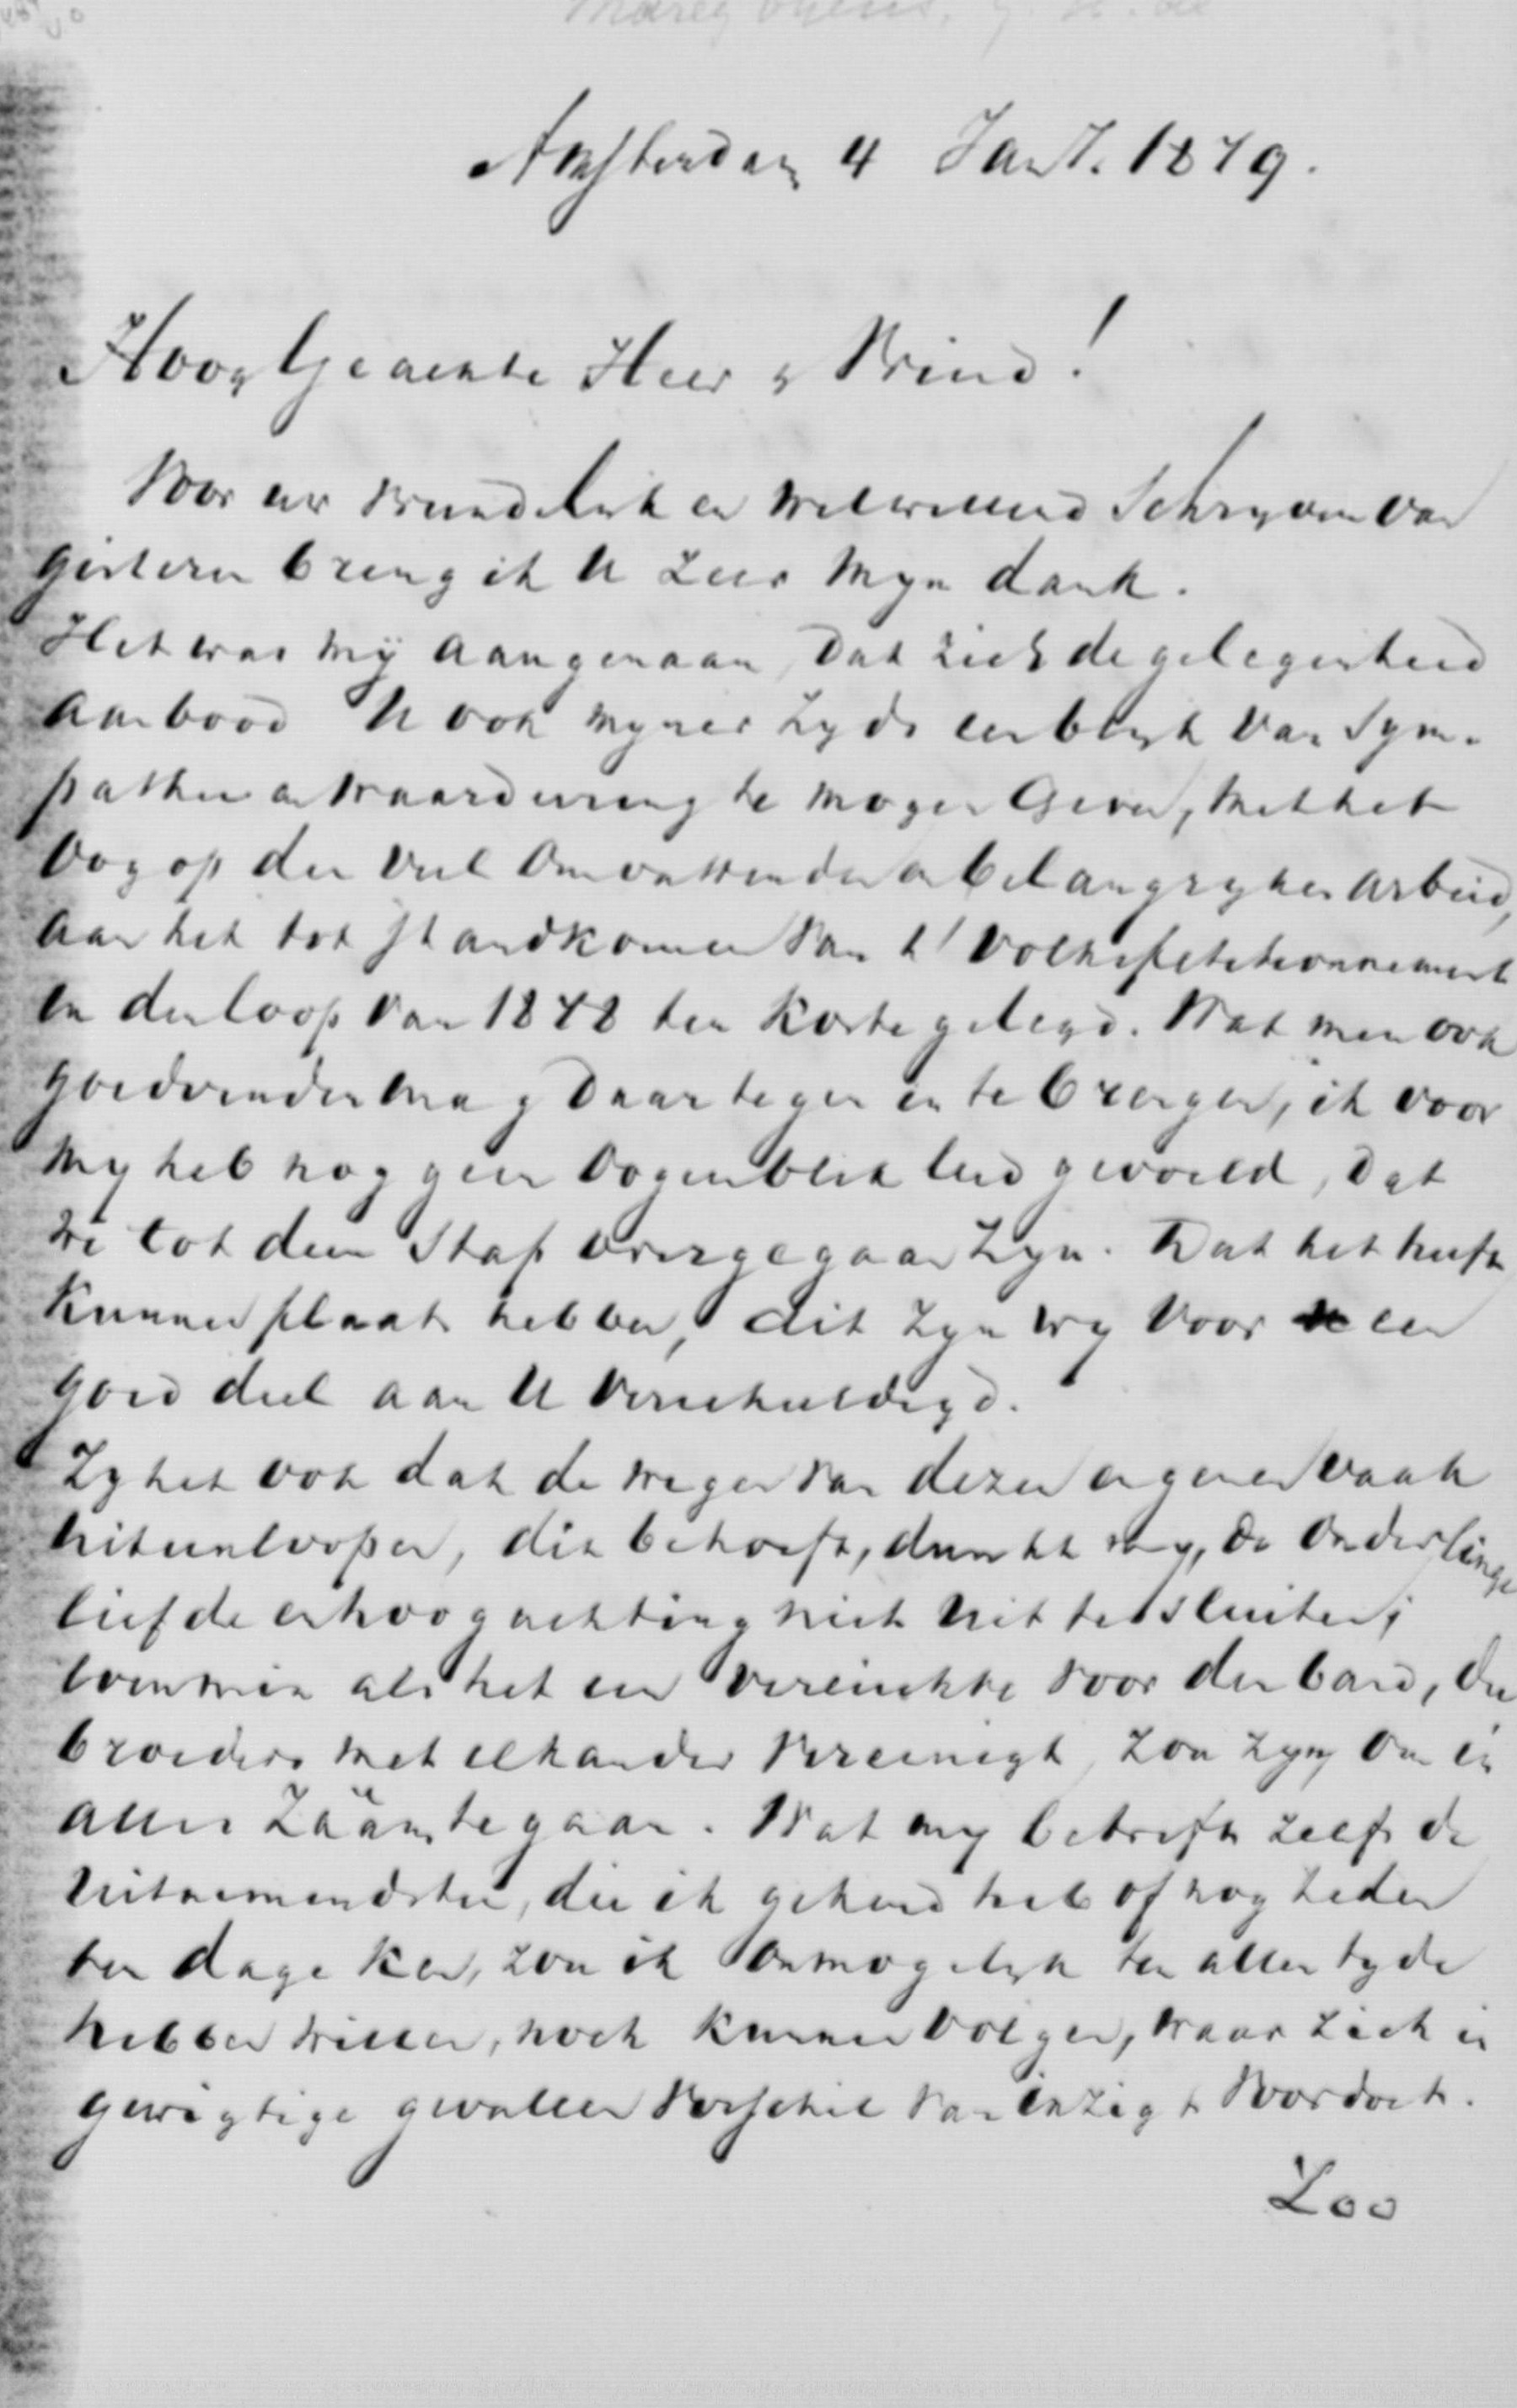 Amsterdam 4 Jan. 1879.
Hoog Geachte Heer & Vriend!
Voor uw vriendelijk en welwillend Schryven van
gisteren breng ik U zeer myn dank.
Het was mij aangenaam, dat zich de gelegenheid
aanbood U ook myner zyds een blyk van Sym-
pathie en waardeering te mogen geven, met het
oog op den veel omvattenden en belangryken arbeid,
aan het tot standkomen van 't Volkspetitionnement
in den loop van 1878 ten koste gelegd. Wat men ook
goedvinden mag daar tegen in te brengen, ik voor
my heb nog geen oogenblik leed gevoeld, dat
we tot dien Stap overgegaan zyn. Dat het heeft
kunnen plaats hebben, dit zyn wy voor een
goed deel aan U verschuldigd.
Zy het ook dat de wegen van dezen en genen vaak
uiteenloopen, dit behoeft, dunkt my, de onderlinge
liefde en hoogachting niet uit te sluiten;
evenmin als het een vereischte voor den band, die
broeders met elkander vereenigt, zou zyn om in
alles zaâm te gaan. Wat my betreft zelfs de
uitnemendsten, die ik gekend heb of nog heden
ten dage ken, zou ik onmogelyk ten allen tyde
hebben willen, noch kunnen volgen, waar zich in
gewigtige gevallen verschil van inzigt voordoet.
Zoo